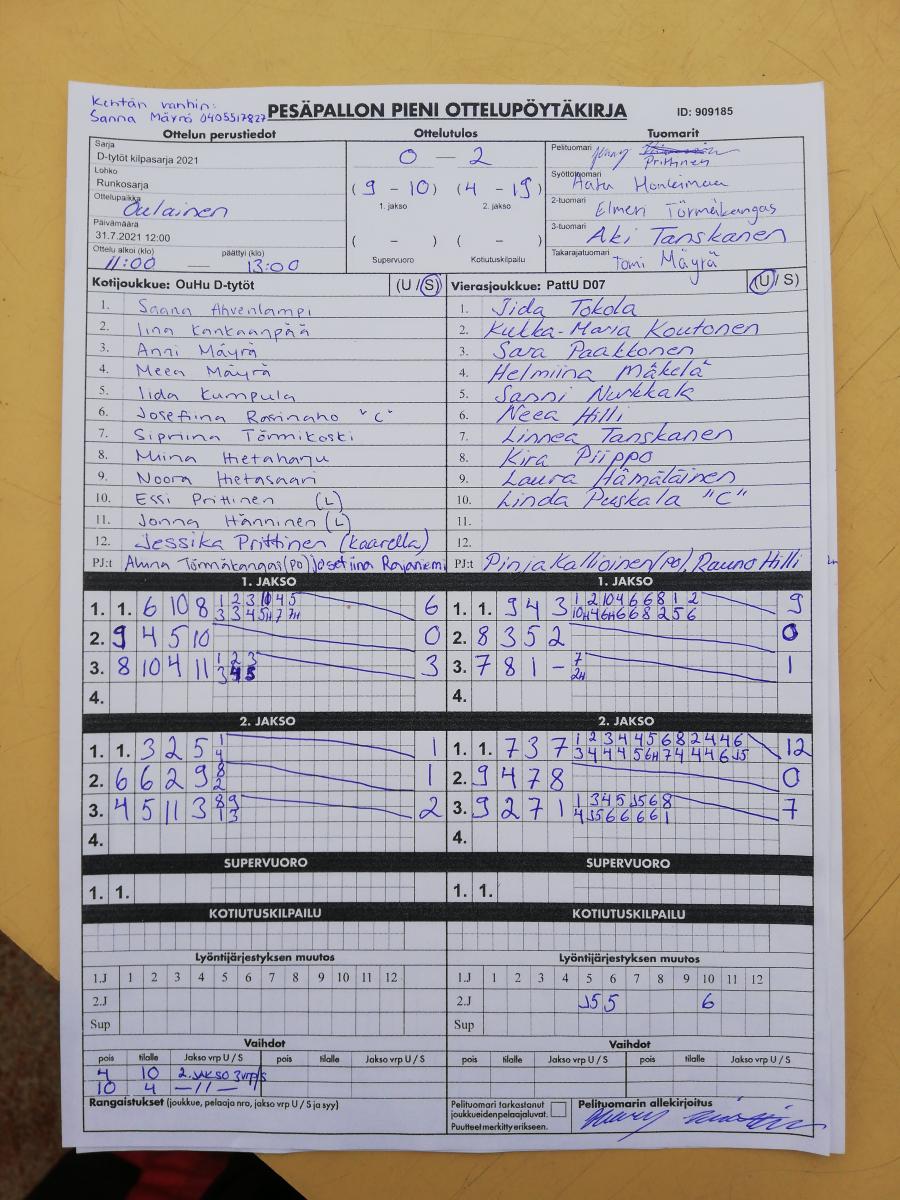 Kentän vanhin:
Sanna Mäyrä 0405517827
PESÄPALLON PIENI OTTELUPÖYTÄKIRJA
ID: 909185
Ottelun perustiedot
Sarja
D-tytöt kilpasarja 2021
Lohko
Runkosarja
Ottelupaikka
Oulainen
Päivämäärä
31.7.2021 12:00
Ottelu alkoi (klo) päättyi (klo)
11:00 — 13:00
Ottelutulos
0 — 2
(9 - 10) (4 - 19)
1. jakso 2. jakso
( - ) ( - )
Supervuoro Kotiutuskilpailu
Tuomarit
Pelituomari
Prittinen
Syöttötuomari
2-tuomari
Elmeri Törmäkangas
3-tuomari
Aki Tanskanen
Takarajatuomari
Tomi Mäyrä
Kotijoukkue: OuHu D-tytöt (U / S)
1. Saana Ahvenlampi
2. Iina Kankaanpää
3. Anni Mäyrä
4. Meea Mäyrä
5. Iida Kumpula
6. Josefiina "C"
7. Sipriina Törmikoski
8. Miina Hietaharju
9. Noora Hietasaari
10. Essi Prittinen (L)
11. Jonna Hänninen (L)
12. Jessika Prittinen (kaarella)
PJ:t Törmäkangas (PO) Josefiina Rajaniemi
Vierasjoukkue: PattU D07 (U / S)
1. Iida Tokola
2. Kukka-Maria Koutonen
3. Sara Paakkonen
4. Helmiina Mäkelä
5. Sanni Nurkkala
6. Neea Hilli
7. Linnea Tanskanen
8. Kira Piippo
9. Laura Hämäläinen
10. Linda Puskala "C"
11.
12.
PJ:t Pinja Kallioinen (PO), Rauno Hilli
1. JAKSO
1. 1. 6 10 8 1 2 3 10 4 5 6
3 3 4 5H 7 7H
2. 9 4 5 10 0
3. 8 10 4 11 1 2 3 3
3 4 5
4.
1. JAKSO
1. 1. 9 4 3 1 2 10 4 6 6 8 1 2 9
10H 4 6H 6 6 8 2 5 6
2. 8 3 5 2 0
3. 7 8 1 - 7 1
2H
4.
2. JAKSO
1. 1. 3 2 5 1 1
4
2. 6 6 2 9 8 1
2
3. 4 5 11 3 8 9 2
1 3
4.
2. JAKSO
1. 1. 7 3 7 1 2 3 4 4 5 6 8 2 4 4 6 12
3 4 4 4 5 6H 7 4 4 4 6 J5
2. 9 4 7 8 0
3. 9 2 7 1 1 3 4 5 J5 6 8 7
4 J5 6 6 6 6 1
4.
SUPERVUORO
1. 1.
SUPERVUORO
1. 1.
KOTIUTUSKILPAILU
KOTIUTUSKILPAILU
Lyöntijärjestyksen muutos
1.J 1 2 3 4 5 6 7 8 9 10 11 12
2.J
Sup
Lyöntijärjestyksen muutos
1.J 1 2 3 4 5 6 7 8 9 10 11 12
2.J J5 5 6
Sup
Vaihdot
pois tilalle Jakso vrp U / S pois tilalle Jakso vrp U / S
4 10 2. JAKSO 3vrp/S
10 4 —11—
Vaihdot
pois tilalle Jakso vrp U / S pois tilalle Jakso vrp U / S
Rangaistukset (joukkue, pelaaja nro, jakso vrp U / S ja syy)
Pelituomari tarkastanut
joukkueiden pelaajaluvat.
Puutteet merkitty erikseen.
Pelituomarin allekirjoitus